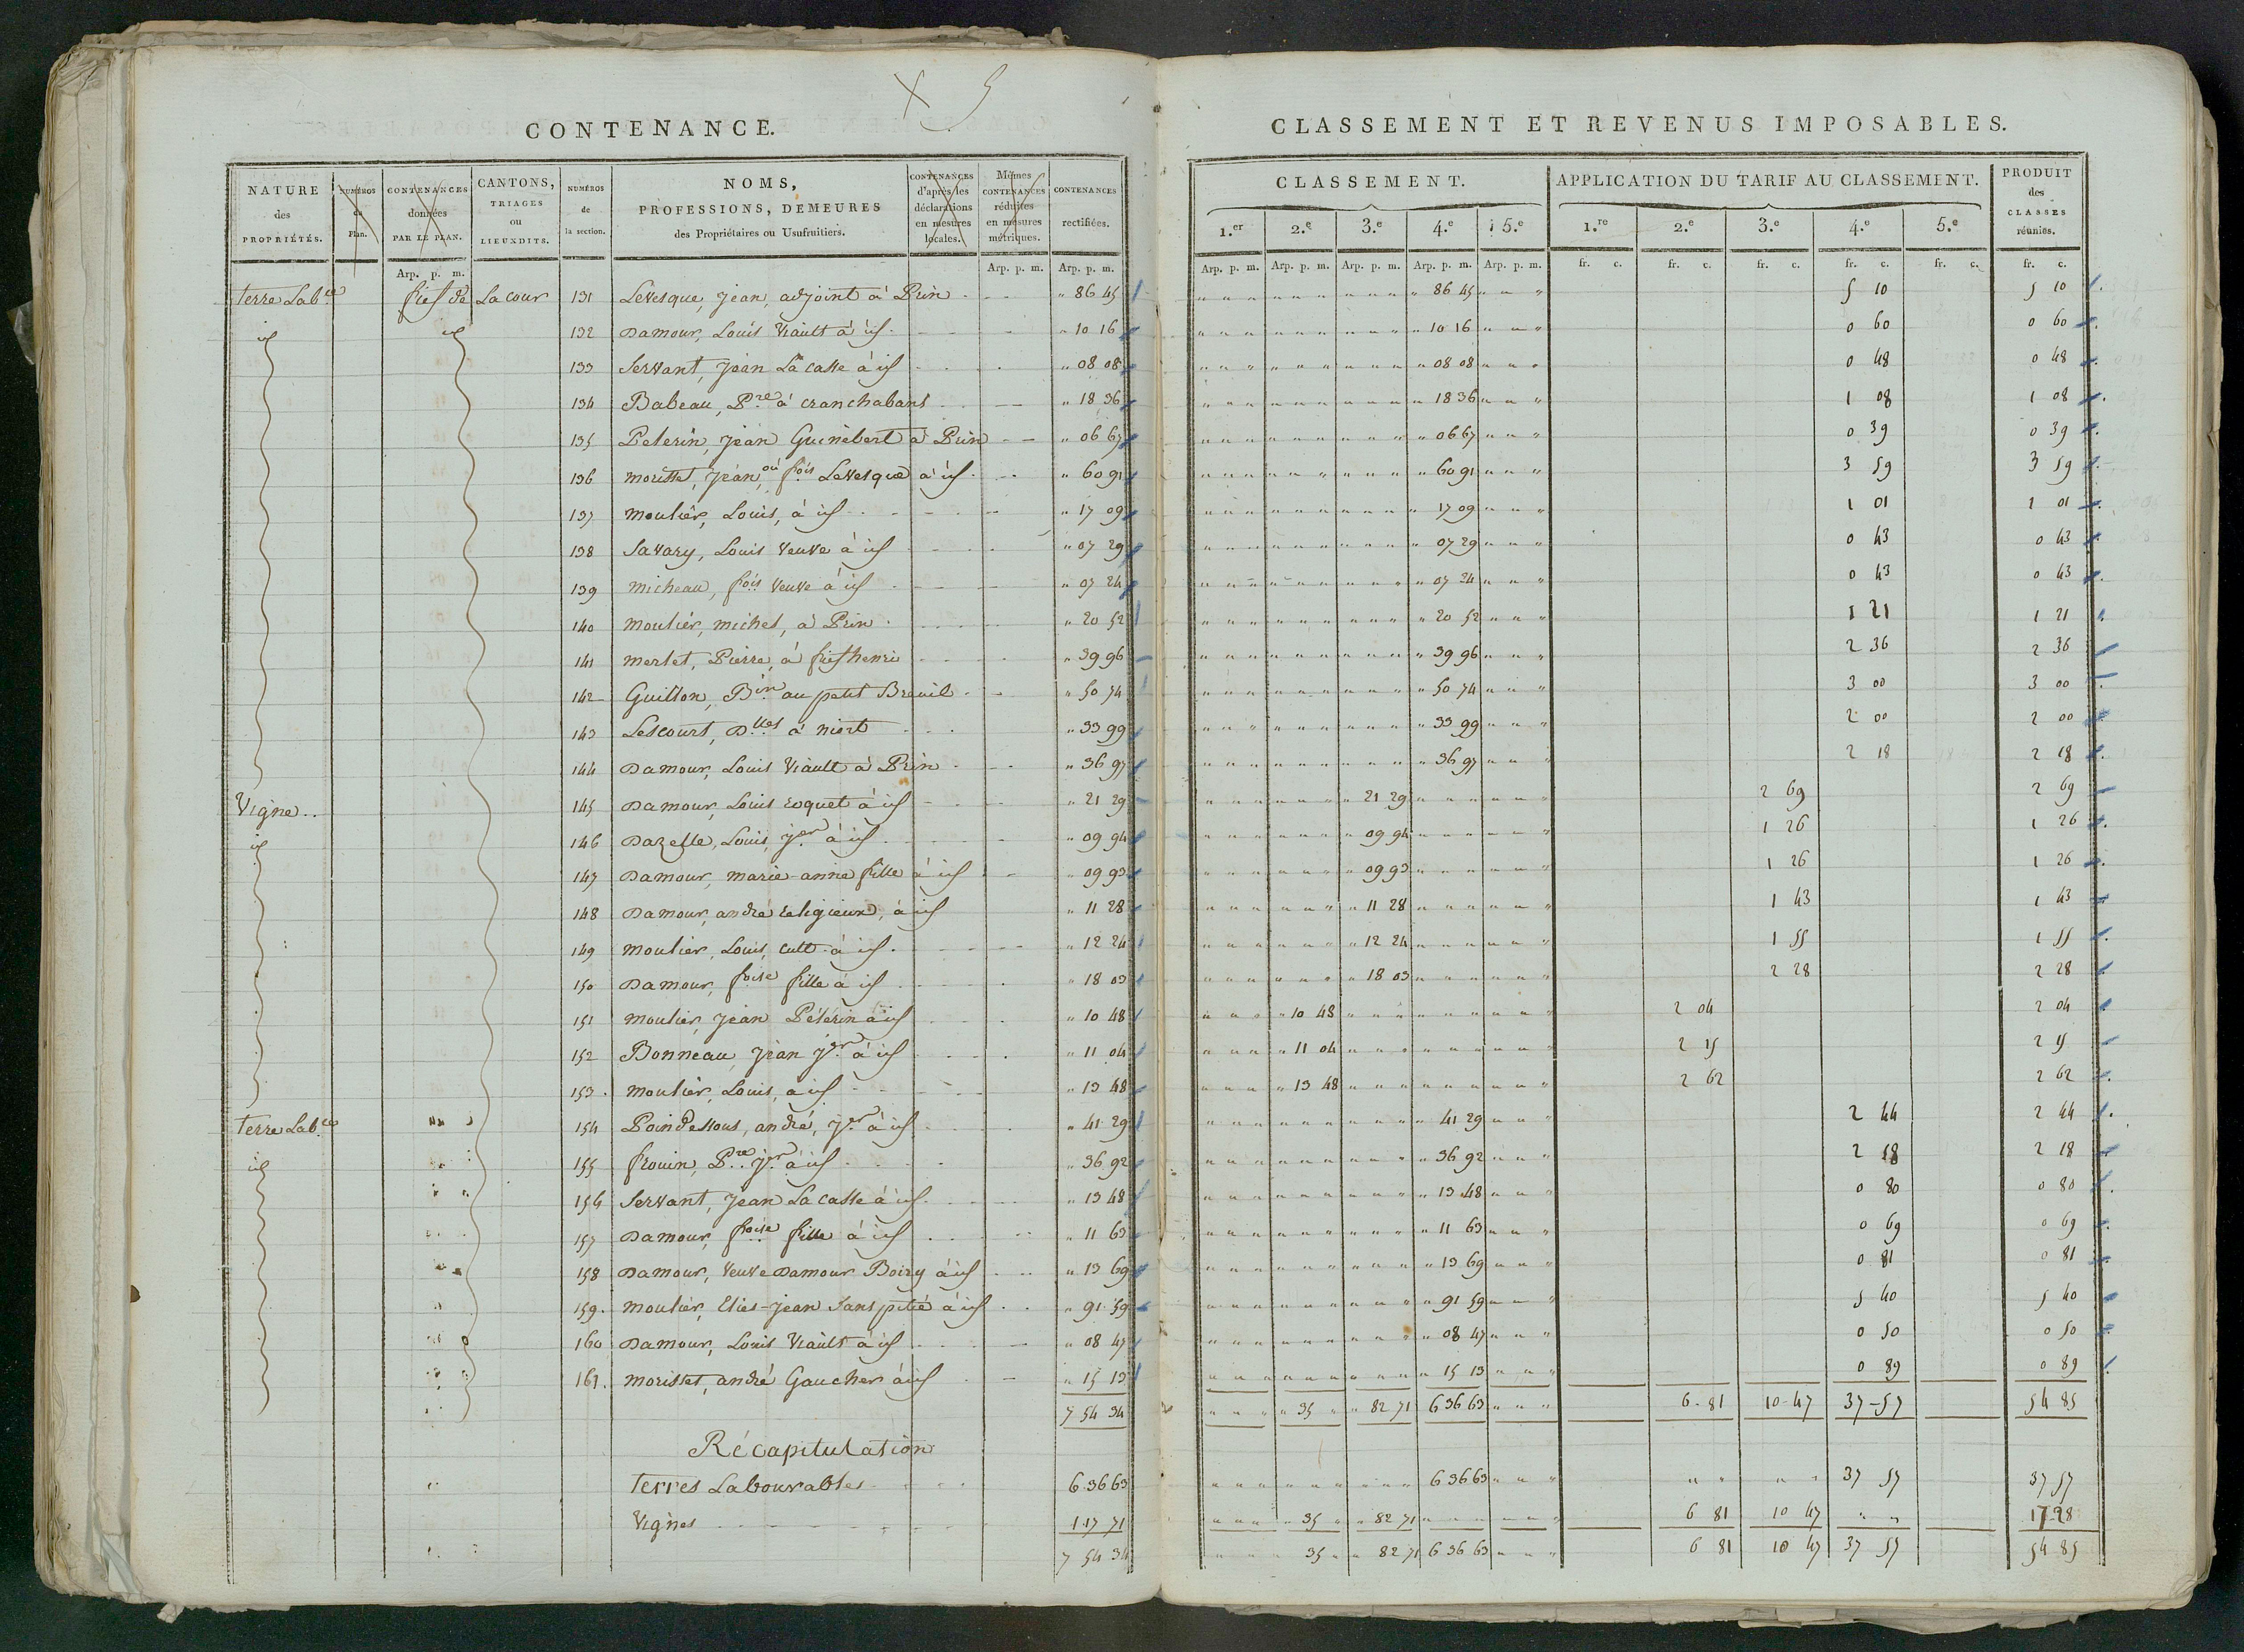 X 5
CONTENANCE.
NATURE des PROPRIÉTÉS.
NUMÉROS du Plan.
CONTENANCES données PAR LE PLAN.
CANTONS, TRIAGES ou LIEUXDITS.
NUMÉROS de la section.
NOMS, PROFESSIONS, DEMEURES des Propriétaires ou Usufruitiers.
CONTENANCES d'après les déclarations en mesures locales.
Mêmes CONTENANCES réduites en mesures métriques.
CONTENANCES rectifiées.
Arp. p. m. Arp. p. m. Arp. p. m.
terre Lab.le fief de La cour 131 Levesque, jean, adjoint à Prin " 86 45
id id 132 Damour, Louis Viault à id " 10 16
133 Servant, jean La casse à id " 08 08
134 Babeau, P.re à cranchabans " 18 36
135 Pelerin, jean Guinebert à Prin " 06 67
136 morisset, jean, ou f.ois Levesque à id " 60 91
137 moulier, Louis, à id " 17 09
138 Savary, Louis veuve à id " 07 29
139 micheau, f.ois veuve à id " 07 24
140 moulier, michel, à Prin " 20 52
141 merlet, Pierre, à fief henri " 39 96
142 Guillon, B.in au petit Breuil " 50 74
143 Lescourt, D.lles à niort " 33 99
144 Damour, Louis Viault à Prin " 36 97
Vigne 145 Damour, Louis roquet à id " 21 29
id 146 Dazelle, Louis, j.er à id " 09 94
147 Damour, marie-anne fille à id " 09 93
148 Damour, andré religieux, à id " 11 28
149 moulier, Louis, cult. à id " 12 24
150 Damour, f.oise fille à id " 18 03
151 moulier, jean Pélérin à id " 10 48
152 Bonneau, jean j.er à id " 11 04
153. moulier, Louis, à id " 13 48
terre Lab.le 154 Poindessous, andré, j.er à id " 41 29
id 155 frouin, P.re j.er à id " 36 92
156 Servant, jean La casse à id " 13 48
157 Damour, f.oise fille à id " 11 63
158 Damour, veuve Damour Boizy à id " 13 69
159. moulier, Elies-jean Sans pitié à id " 91 59
160 Damour, Louis Viault à id " 08 47
161. morisset, andré Gaucher à id " 15 13
7 54 34
Récapitulation
terres Labourables 6 36 63
Vignes 1 17 71
7 54 34
CLASSEMENT ET REVENUS IMPOSABLES.
CLASSEMENT.
APPLICATION DU TARIF AU CLASSEMENT.
PRODUIT des CLASSES réunies.
1.er 2.e 3.e 4.e 5.e 1.re 2.e 3.e 4.e 5.e
Arp. p. m. Arp. p. m. Arp. p. m. Arp. p. m. Arp. p. m. fr. c. fr. c. fr. c. fr. c. fr. c. fr. c.
" 86 45 5 10 5 10
" 10 16 0 60 0 60
" 08 08 0 48 0 48
" 18 36 1 08 1 08
" 06 67 0 39 0 39
" 60 91 3 59 3 59
" 17 09 1 01 1 01
" 07 29 0 43 0 43
" 07 24 0 43 0 43
" 20 52 1 21 1 21
" 39 96 2 36 2 36
" 50 74 3 00 3 00
" 33 99 2 00 2 00
" 36 97 2 18 2 18
" 21 29 2 69 2 69
" 09 94 1 26 1 26
" 09 93 1 26 1 26
" 11 28 1 43 1 43
" 12 24 1 55 1 55
" 18 03 2 28 2 28
" 10 48 2 04 2 04
" 11 04 2 15 2 15
" 13 48 2 62 2 62
" 41 29 2 44 2 44
" 36 92 2 18 2 18
" 13 48 0 80 0 80
" 11 63 0 69 0 69
" 13 69 0 81 0 81
" 91 59 5 40 5 40
" 08 47 0 50 0 50
" 15 13 0 89 0 89
" 35 " " 82 71 6 36 63 6-81 10-47 37-57 54 85
6 36 63 37 57 37 57
" 35 " " 82 71 6 81 10 47 17-28
35 " " 82 71 6 36 63 6 81 10 47 37 57 54 85